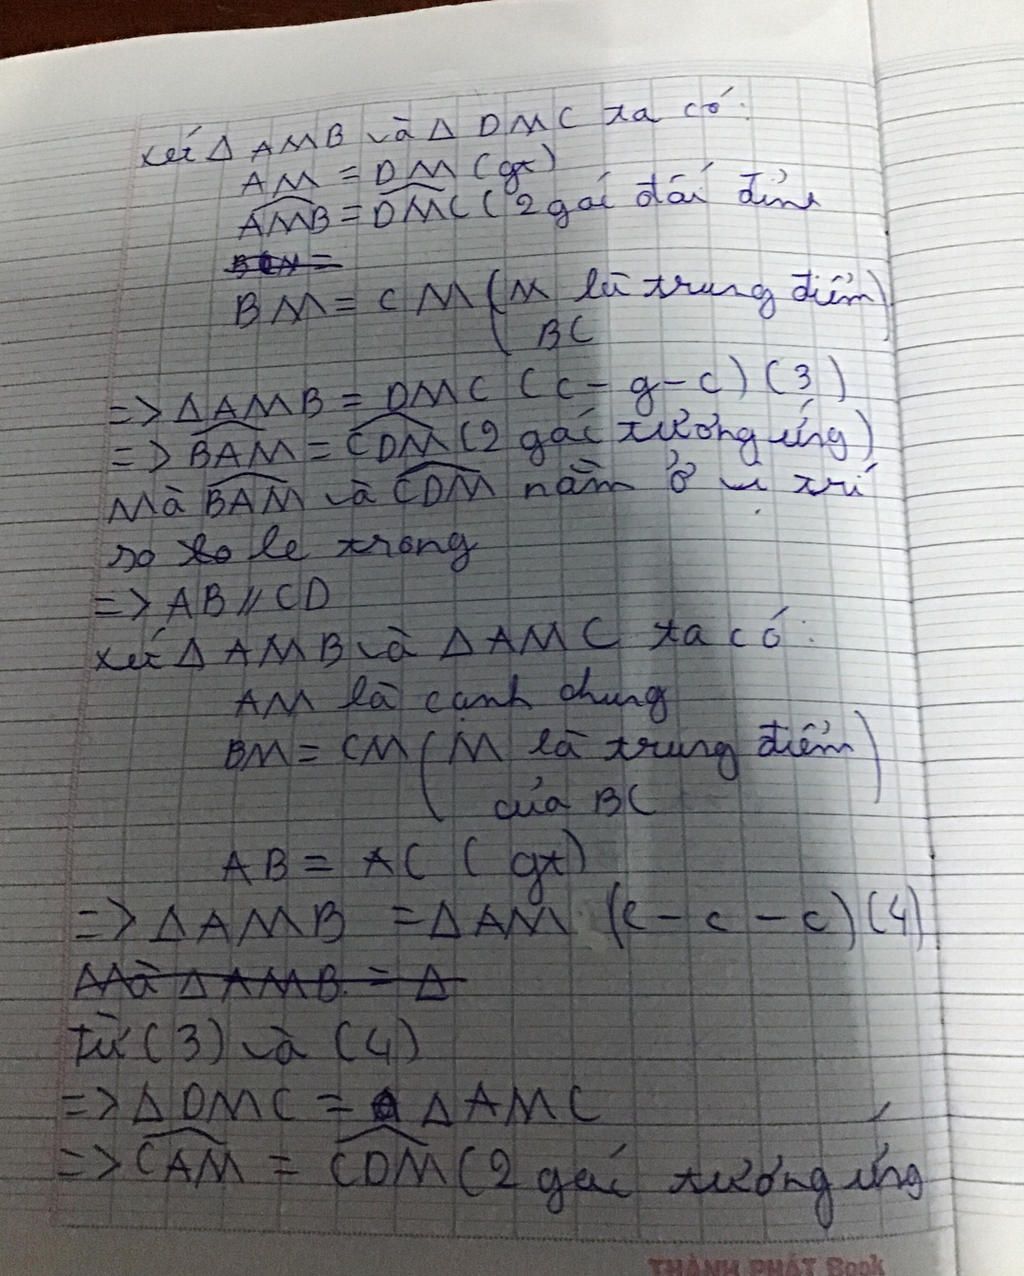 xét Δ AMB và Δ DMC ta có:
AM = DM (gt)
\widehat{AMB} = \widehat{DMC} (2 góc đối đỉnh
BM = CM (M là trung điểm)
BC
=> ΔAMB = DMC (c - g - c) (3)
=> \widehat{BAM} = \widehat{CDM} (2 góc tương ứng)
Mà \widehat{BAM} và \widehat{CDM} nằm ở vị trí
so le trong
=> AB // CD
xét Δ AMB và Δ AMC ta có:
AM là cạnh chung
BM = CM (M là trung điểm)
của BC
AB = AC (gt)
=> Δ AMB = Δ AM (c - c - c) (4)
Mà Δ AMB = Δ
Từ (3) và (4)
=> Δ DMC = Δ AMC
=> \widehat{CAM} = \widehat{CDM} (2 góc tương ứng
THÀNH PHÁT Book